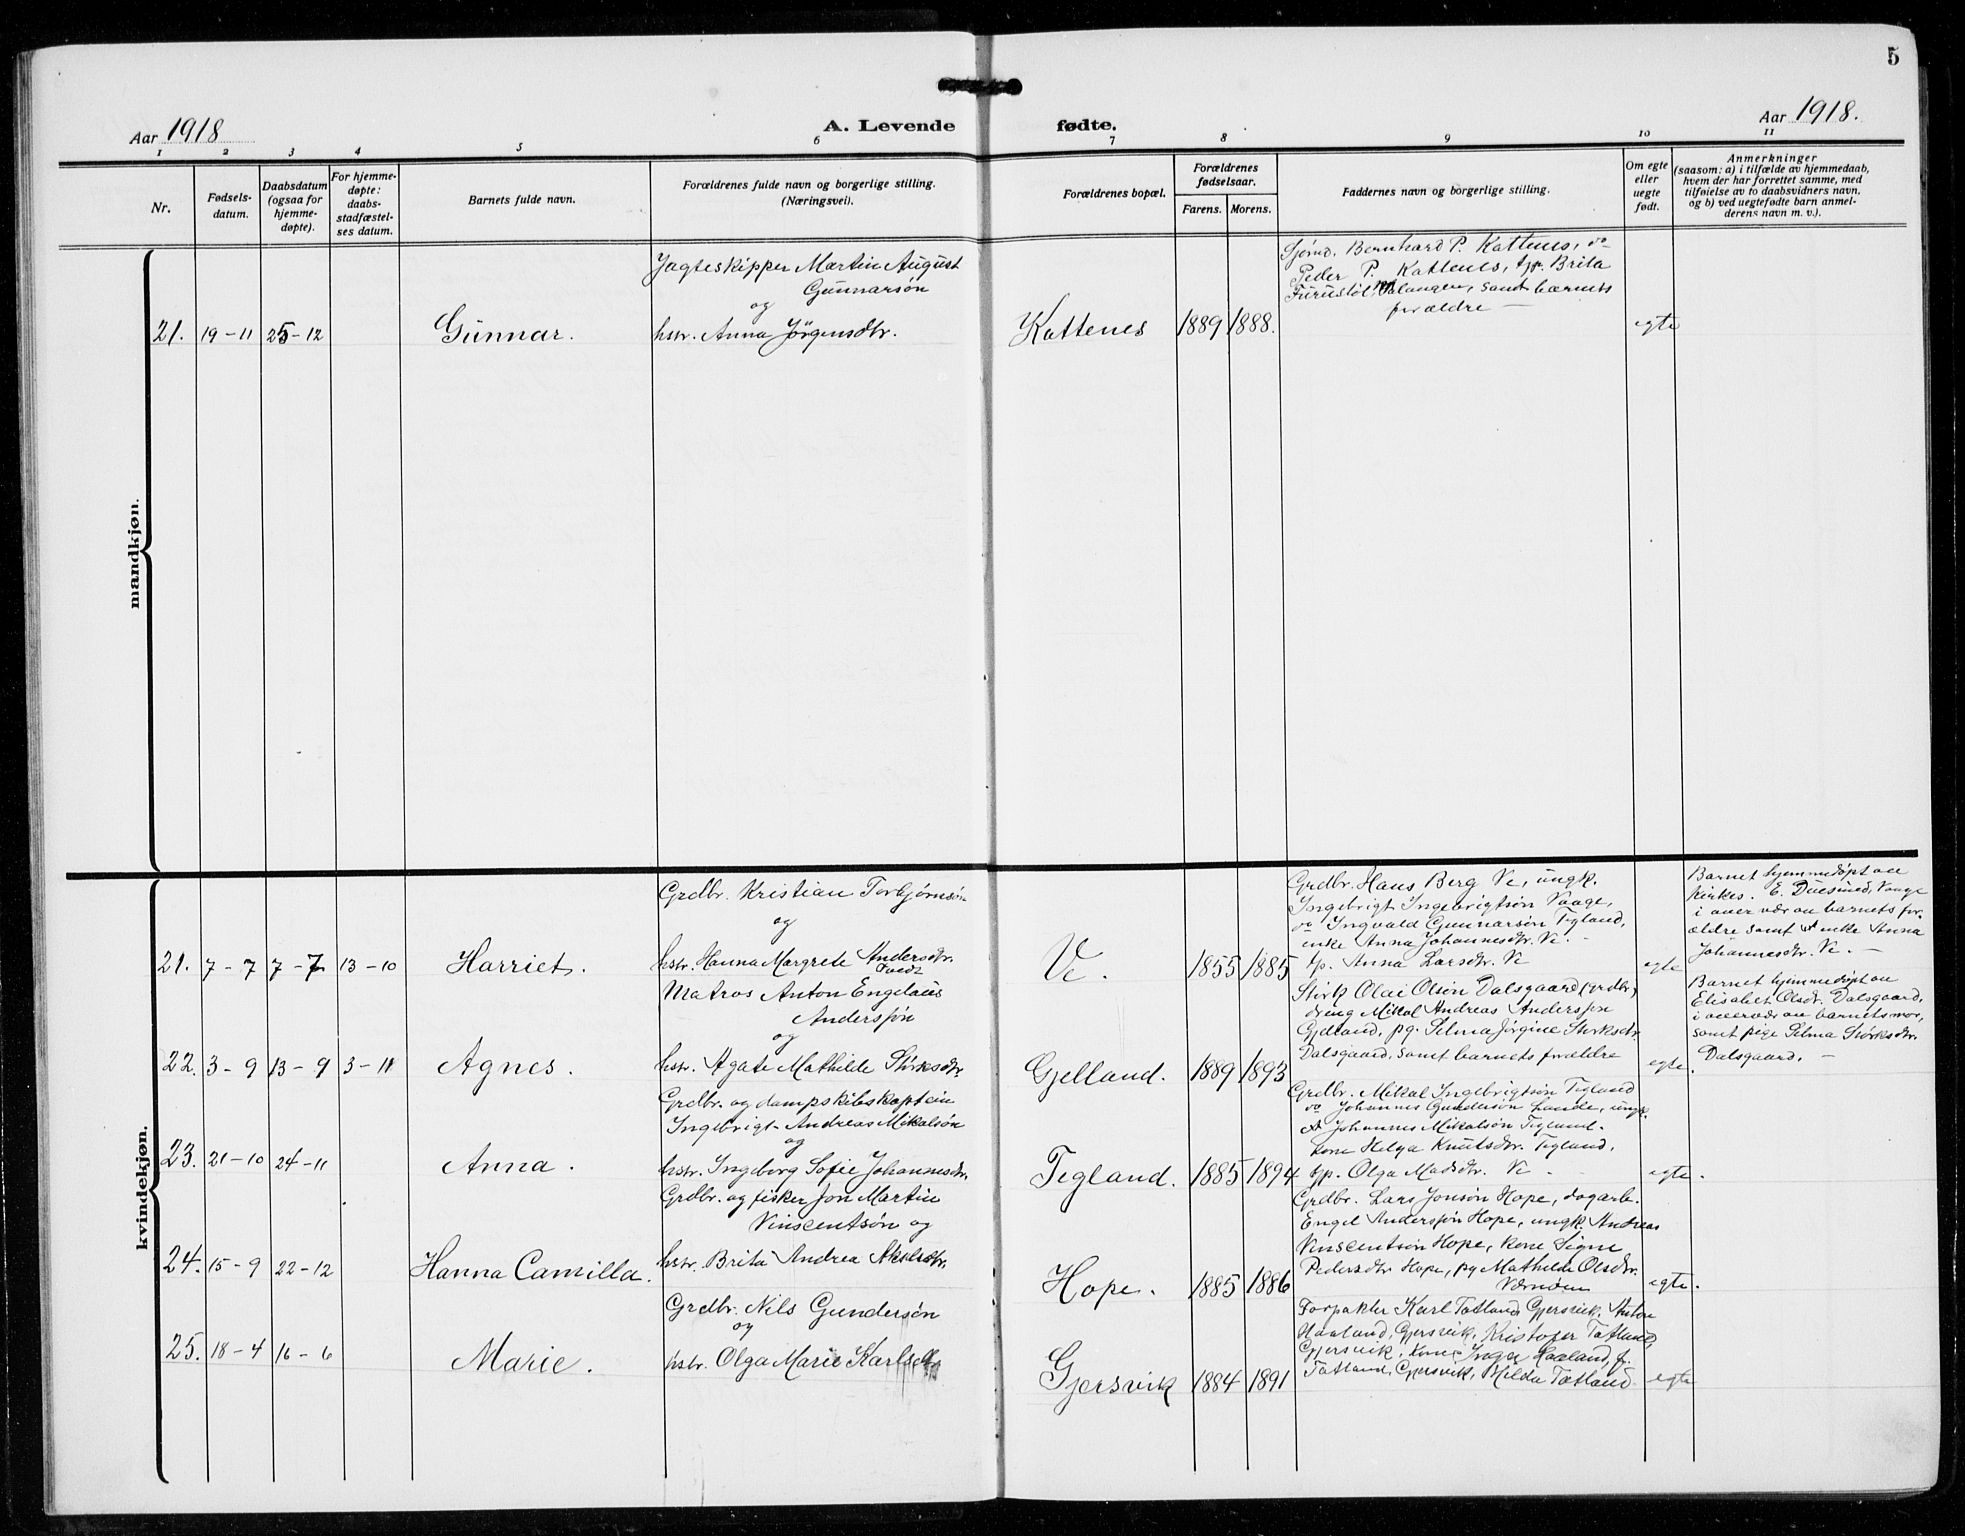 5
Aar 1918
A. Levende fødte.
Aar 1918.
1 2 3 4 5 6 7 8 9 10 11
Nr.
Fødsels-
datum.
Daabsdatum
(ogsaa for
hjemme-
døpte).
For hjemme-
døpte:
daabs-
stadfæstel-
ses datum.
Barnets fulde navn.
Forældrenes fulde navn og borgerlige stilling.
(Næringsvei).
Forældrenes bopæl.
Forældrenes
fødselsaar.
Farens. Morens.
Faddernes navn og borgerlige stilling.
Om egte
eller
uegte
født.
Anmerkninger
(saasom: a) i tilfælde av hjemmedaab,
hvem der har forrettet samme, med
tilføielse av to daabsvidners navn,
og b) ved uegtefødte barn anmel-
derens navn m. v.).
mandkjøn.
21. 19-11 25-12 Gunnar.
Jagteskipper Martin August
Gunnarsøn
og
hstr. Anna Jørgensdtr.
Kattenes 1889 1888.
Sjømd. Bernhard P. Kattenes, do
Peder P. Kattenes, tjp. Brita
Furustøl, samt barnets
forældre —
egte
kvindekjøn.
21. 7-7 7-7 13-10 Harriet.
Grdbr. Kristian Torbjørnsøn
og
hstr. Hanna Margrete Andersdtr.
Tvedt
Ve. 1855 1885
Grdbr. Hans Berg Ve, ungk.
Ingebrigt Ingebrigtsøn Vaage,
do Ingvald Gunnarsøn Tegland,
enke Anna Johannesdtr. Ve. -
tp. Anna Larsdtr. Ve
egte
Barnet hjemmedøpt av
kirkes. E. Vaage
i overvær av barnets for-
ældre samt enke Anna
Johannesdtr. Ve. —
22. 3-9 13-9 3-11 Agnes.
Matros Anton Engelaus
Andersøn
og
hstr. Agate Mathilde Størksdtr.
Gjelland. 1889 1893
Størk Olai Olsøn Dalsgaard (grdbr)
dreng Mikal Andreas Andersøn
Gjelland, pg. Selma Jørgine Størksdtr.
Dalsgaard, samt barnets forældre
egte.
Barnet hjemmedøpt av
Elisabet Olsdr. Dalsgaard,
i overvær av barnets mor,
samt pige Selma Størksdtr.
Dalsgaard. —
23. 21-10 24-11 Anna.
Grdbr. og dampskibskaptein
Ingebrigt Andreas Mikalsøn
og
hstr. Ingeborg Sofie Johannesdtr.
Tegland. 1885 1894
Grdbr. Mikal Ingebrigtsøn Tegland
do Johannes Gundersøn Lande, ungk.
Johannes Mikalsøn Tegland.
Kone Helga Knutsdtr. Tegland,
tjp. Olga Madsdtr. Ve -
egte.
24. 15-9 22-12 Hanna Camilla.
Grdbr. og fisker Jon Martin
Vinscentsøn og
hstr. Brita Andrea Akselsdtr.
Hope. 1885 1886
Grdbr. Lars Jonsøn Hope, dagarb.
Engel Andersøn Hope, ungk. Andreas
Vinscentsøn Hope, kone Signe
Pedersdtr Hope, pg Mathilde Olsdtr.
Værnøen
egte.
25. 18-4 16-6 Marie.
Grdbr. Nils Gundersøn
og
hstr. Olga Marie
Gjersvik 1884 1891
Forpakter Karl Tatland Gjersvik, Anton
Haaland, Gjersvik, Kristofer Tatland,
Gjersvik, kone Inger Haaland, f.
Tatland, Gjersvik, Milda Tatland
egte